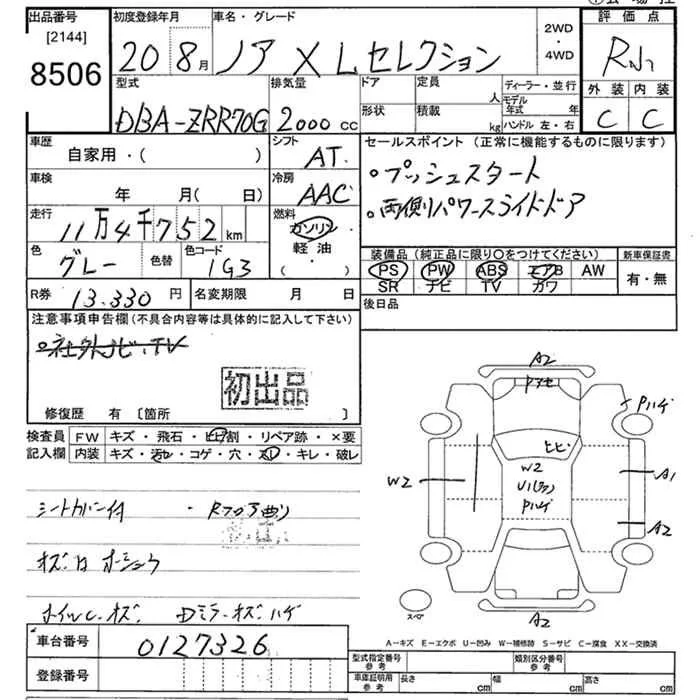 出品番号 初度登録年月 車名・グレード 2WD・4WD 評価点
[2144]
8506
20 8月 ノア X Lセレクション
型式 排気量 ドア 定員 人 ディーラー・並行 外装 内装
DBA-ZRR70G 2000cc 形状 積載 kg モデル年式 年 ハンドル 左・右 C C
車歴 自家用・( ) シフト AT セールスポイント (正常に機能するものに限ります)
車検 年 月( 日) 冷房 AAC
・プッシュスタート
・両側パワースライドドア
走行 11万4千752km 燃料 ガソリン 軽油 ・( )
色 グレー 色替 色コード 1G3
装備品(純正品に限り○をつけてください) 新車保証書
PS PW ABS エアB AW 有・無
SR ナビ TV カワ
R券 13.330円 名変期限 月 日 後日品
注意事項申告欄(不具合内容等は具体的に記入して下さい)
・社外ナビ、TV
初出品
修復歴 有 [箇所 ]
検査員記入欄 FW キズ・飛石・ヒビ割・リペア跡・×要
内装 キズ・汚れ・コゲ・穴・スレ・キレ・破レ
シートカバー付 ・Rフロア曲り
ホイルC.キズ. Dミラーキズハゲ
A2
Pハゲ
ヒビ
W2
W2
A1
U1
Pハゲ
A2
スペア
A2
A-キズ E-エクボ U-凹み W-補修跡 S-サビ C-腐食 XX-交換済
車台番号 0127326
登録番号
型式指定番号参考 類別区分番号参考
車庫証明用参考 長さ cm 幅 cm 高さ cm